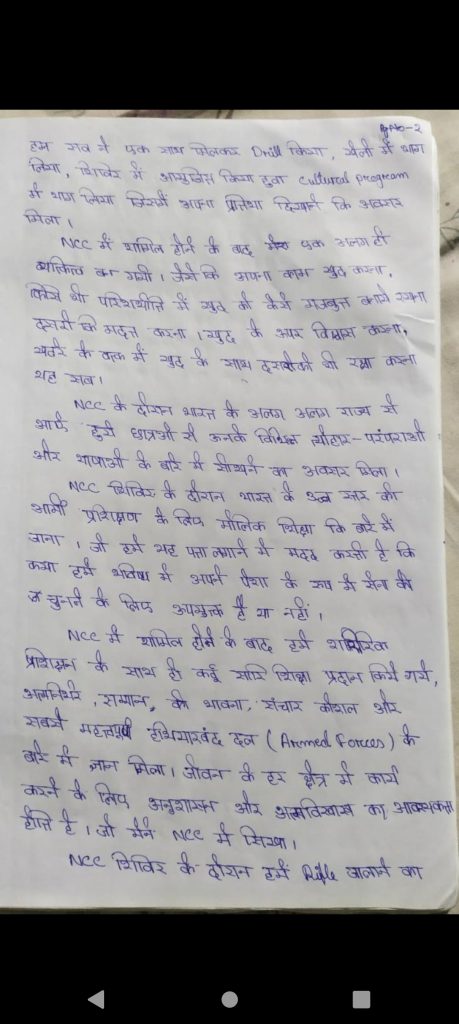 P.No-2
हम सब ने एक साथ मिलकर Drill किया, खेलों में भाग
लिया, शिविर में आयोजित किया हुवा Cultural program
में भाग लिया जिसमें अपना प्रतिभा दिखाने कि अवसर
मिला।
NCC में शामिल होने के बाद एक अलग ही
व्यक्तित्व बन गयी। जैसे कि अपना काम खुद करना,
किसी भी परिस्थिति में खुद को कैसे मजबूत बनाये रखना
दूसरों कि मदत करना। खुद के ऊपर विश्वास करना,
खतरे के वक्त में खुद के साथ दूसरों को भी रक्षा करना
यह सब।
NCC के दौरान भारत के अलग अलग राज्य से
आये हुये छात्राओं से उनके विभिन्न त्यौहार-परंपराओं
और भाषाओं के बारे में सीखने का अवसर मिला।
NCC शिविर के दौरान भारत के स्तर की
आर्मी प्रशिक्षण के लिए मौलिक शिक्षा कि बारे में
जाना। जो हमें यह पता लगाने में मदद करती है कि
क्या हमें भविष्य में अपने पेशा के रूप में सेना को
चुनने के लिए उपयुक्त है या नहीं।
NCC में शामिल होने के बाद हमें शारीरिक
प्रशिक्षण के साथ ही कई सारि शिक्षा प्रदान किये गये,
आत्मनिर्भर, सम्मान, की भावना, संचार कौशल और
सबसे महत्वपूर्ण हथियारबंद दल (Armed Forces) के
बारे में ज्ञान मिला। जीवन के हर क्षेत्र में कार्य
करने के लिए अनुशासन और आत्मविश्वास का आवश्यकता
होति है। जो मैने NCC में सिखा।
NCC शिविर के दौरान हमें Rifle चालाने का